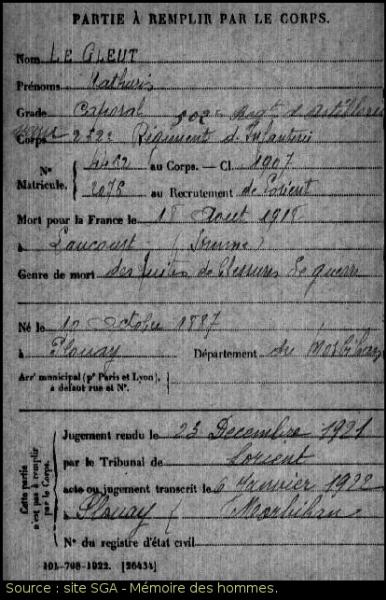 PARTIE À REMPLIR PAR LE CORPS.
Nom LE GLEUT
Prénoms Mathurin
Grade Caporal 502e Regt d'Artillerie
Corps 272e Régiment d'Infanterie
N° Matricule. 4422 au Corps. — Cl. 1907
2076 au Recrutement de Lorient
Mort pour la France le 18 Aout 1918
à (Somme)
Genre de mort des suites de blessures de guerre
Né le 10 Octobre 1887
à Plouay Département du Morbihan
Arrt municipal (pr Paris et Lyon), à défaut rue et N°.
Cette partie n'est pas à remplir par le Corps.
Jugement rendu le 23 Decembre 1921
par le Tribunal de Lorient
acte ou jugement transcrit le 6 Janvier 1922
à Plouay (Morbihan)
N° du registre d'état civil
101-708-1922. [26434]
Source : site SGA - Mémoire des hommes.